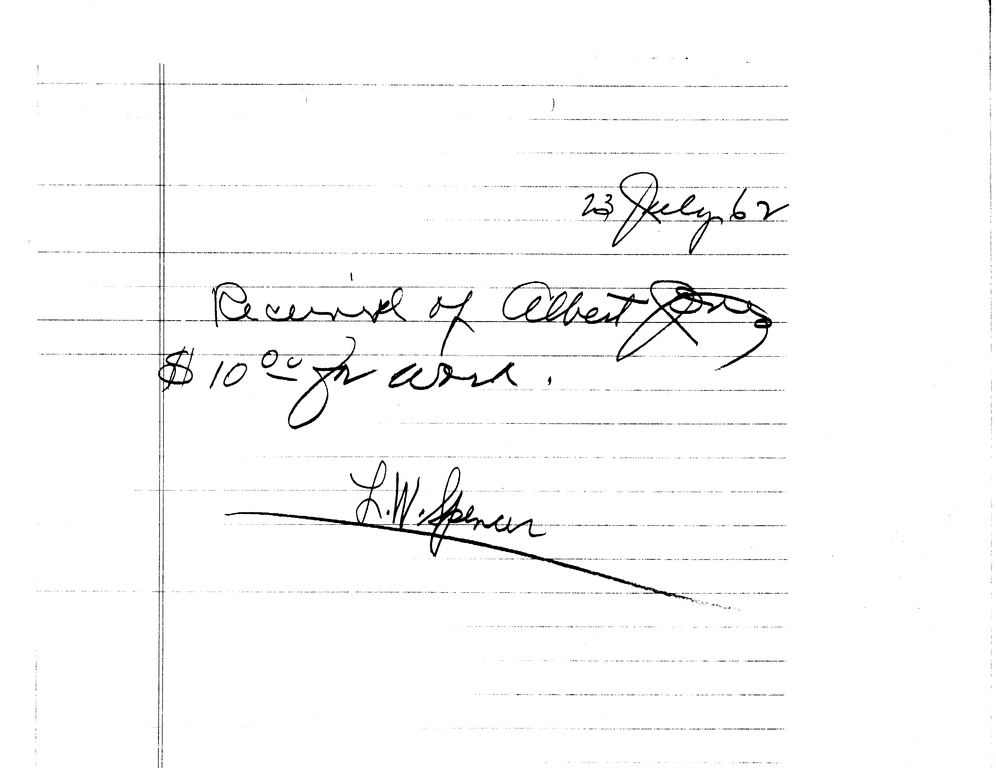 23 July 62
Received of Albert Jones
$ 10 00 for work.
L.W. Spencer